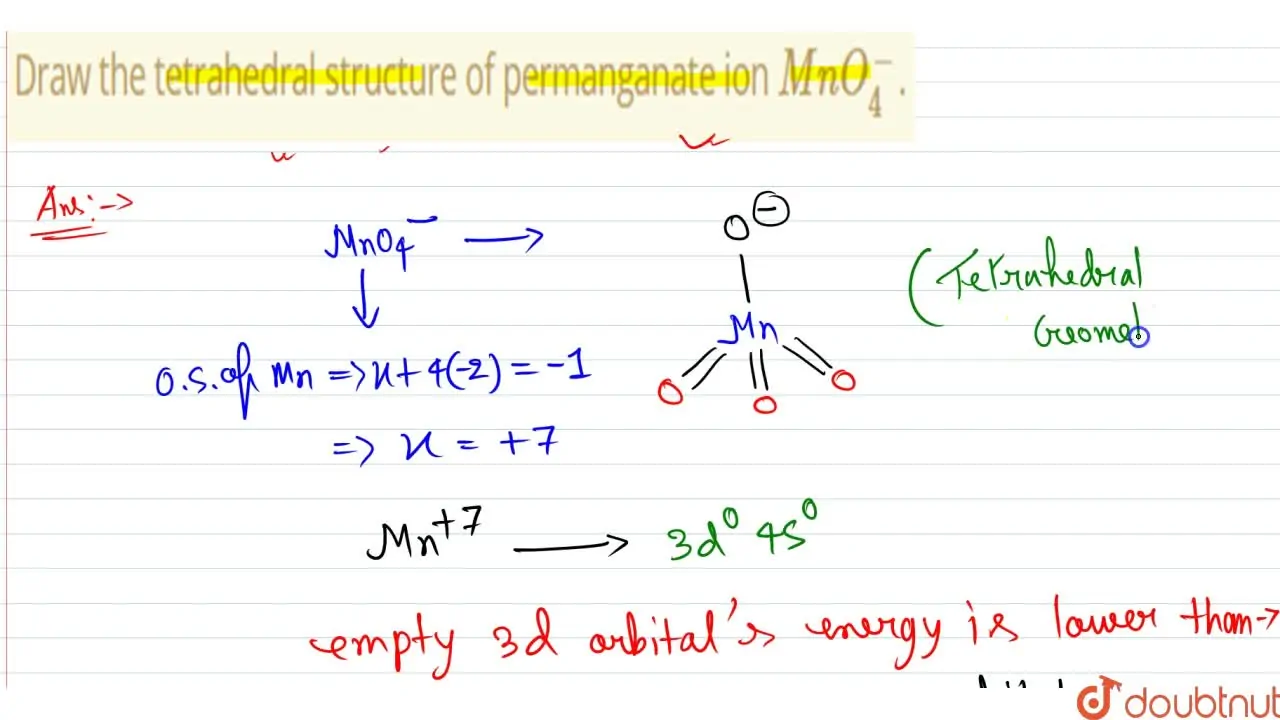 Draw the tetrahedral structure of permanganate ion MnO₄⁻ .
Ans:→
MnO₄⁻ →
O ⊖
(Tetrahedral
Geomet
Mn
O O O
O.S. of Mn => x + 4(-2) = -1
=> x = +7
Mn⁺⁷ → 3d⁰ 4s⁰
empty 3d orbital's energy is lower than →
doubtnut